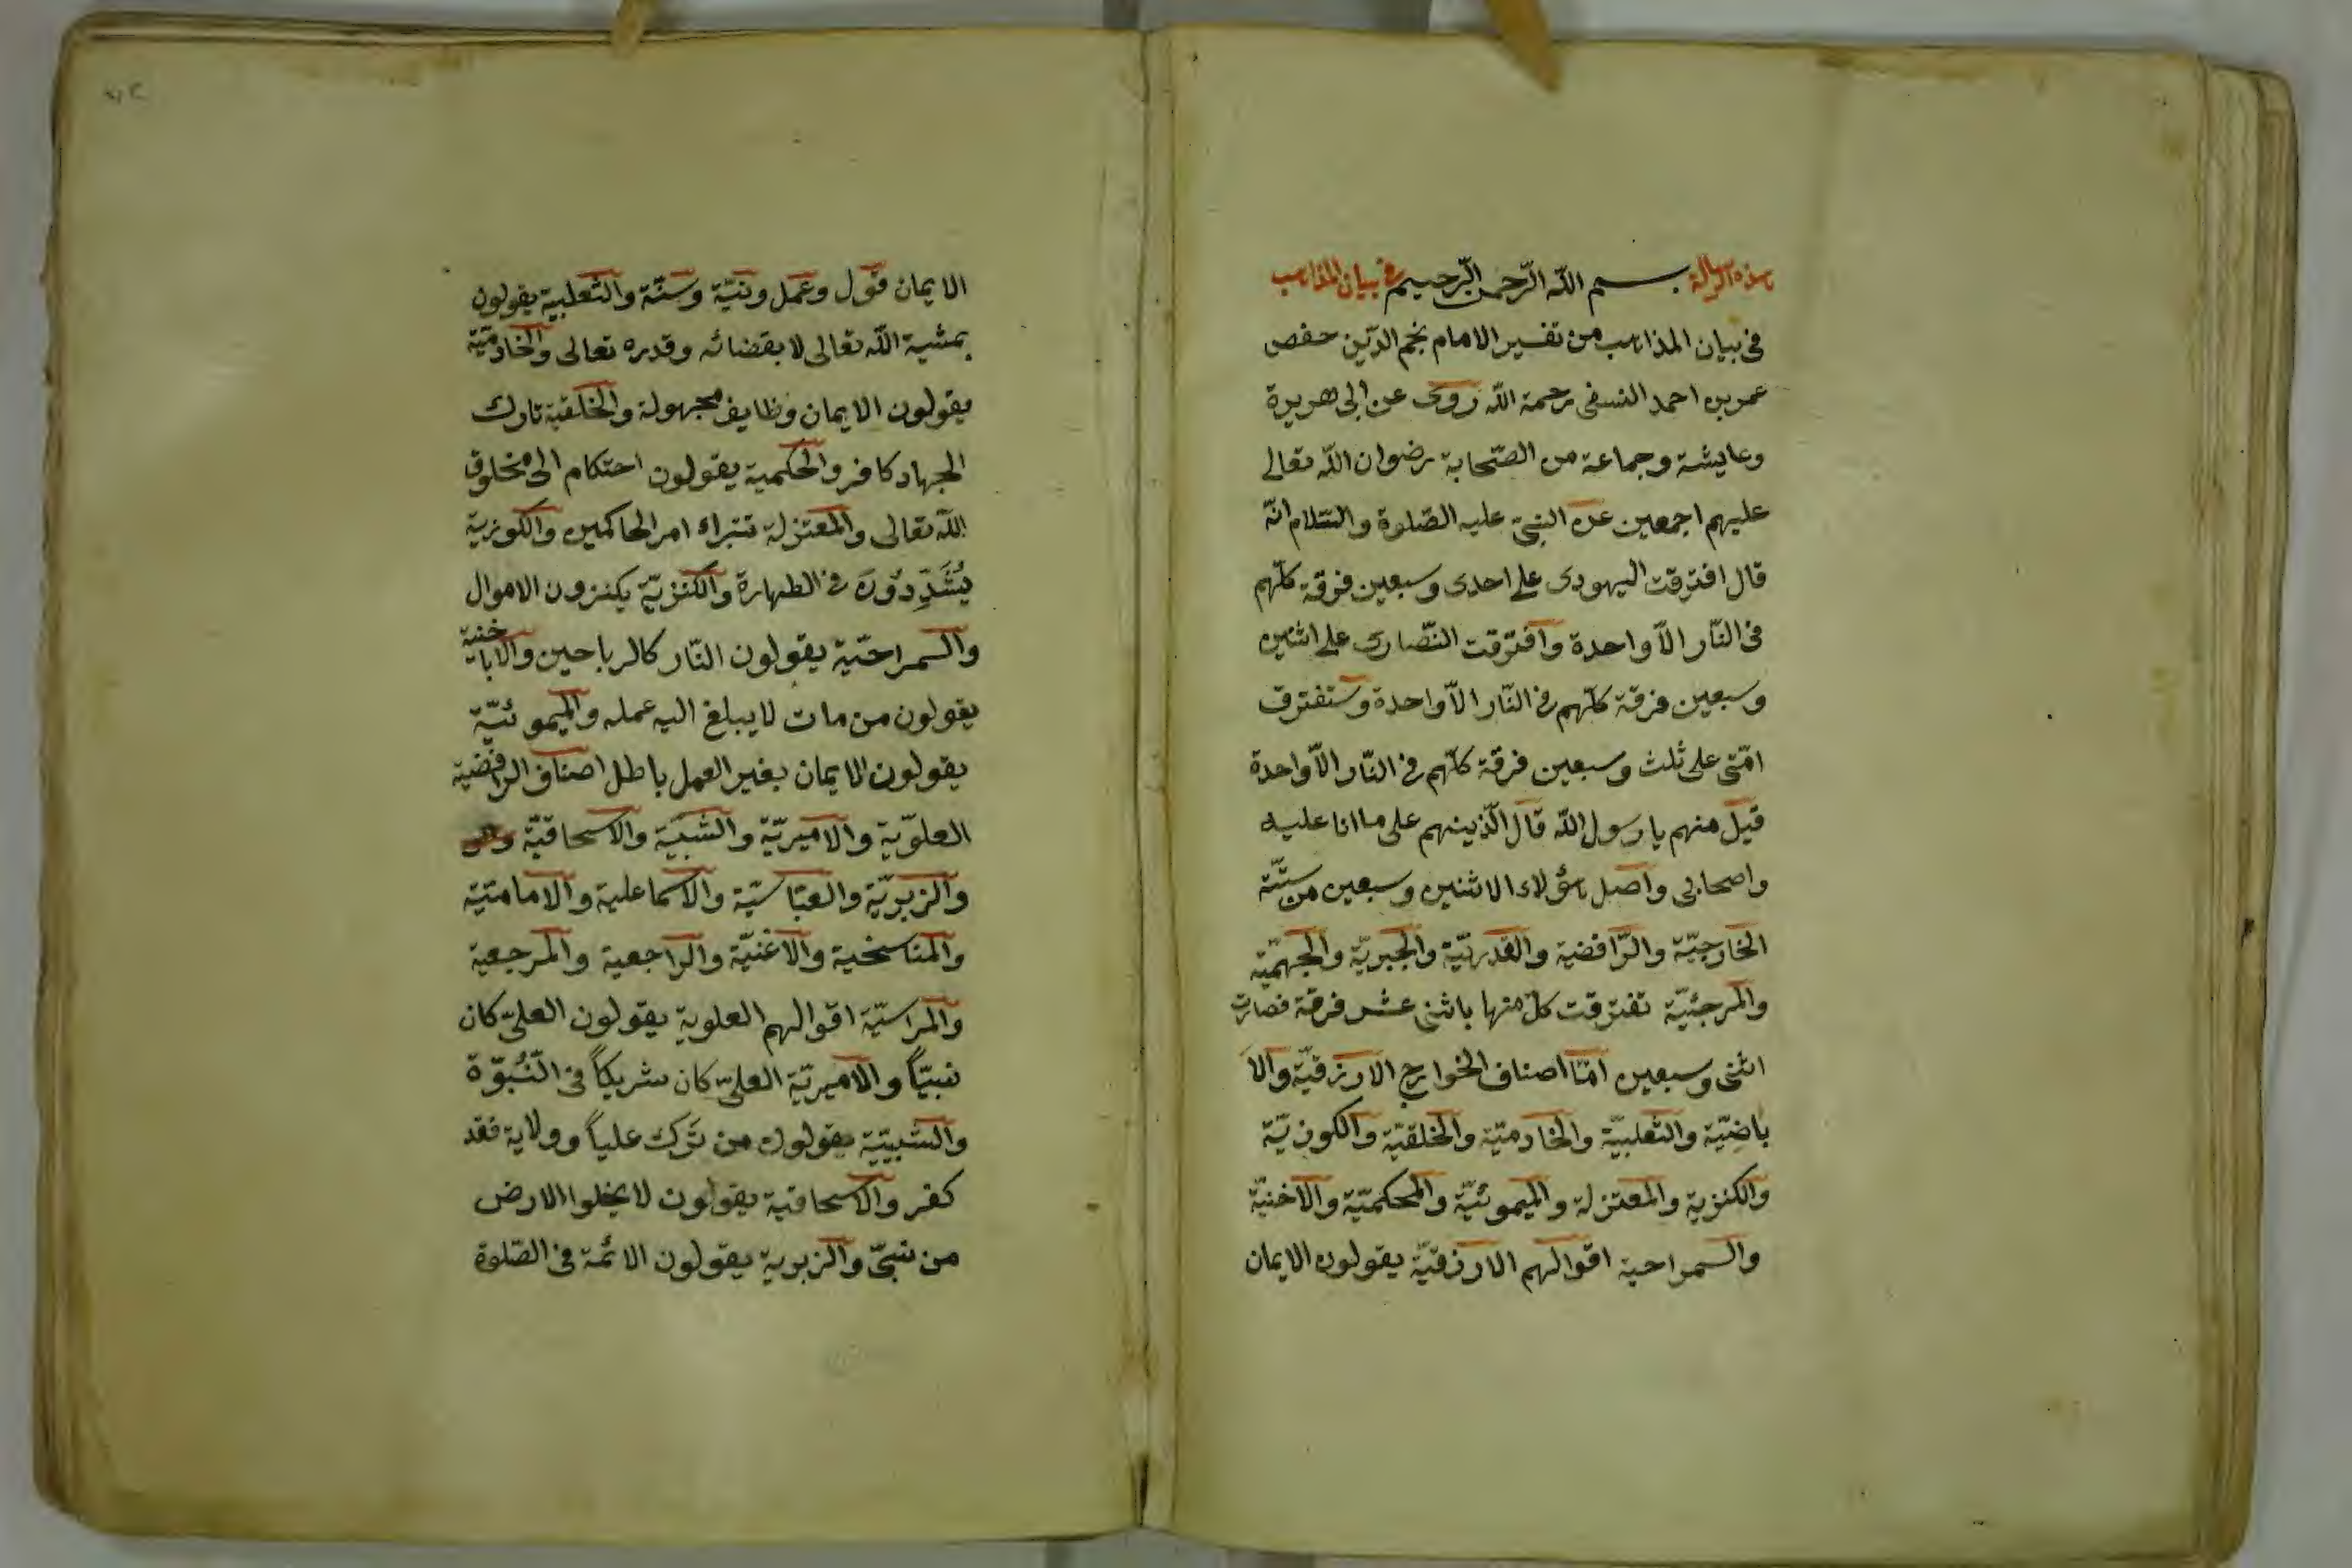 هذه الرسالة بسم الله الرّحمن الرّحيم في بيان المذاهب
فى بيان المذاهب من تفسير الامام نجم الدّين حفص
عمر بن احمد النسفى رحمة الله روى عن ابى هريرة
وعايشة وجماعة من الصّحابة رضوان الله تعالى
عليهم اجمعين عن النبىّ عليه الصّلوة والسّلام انّه
قال افترقت اليهودى على احدى وسبعين فرقة كلّهم
فى النّار الّا واحدة وافترقت النّصارى على اثنين
وسبعين فرقة كلّهم فى النّار الّا واحدة وستفترق
امّتى على ثلث وسبعين فرقة كلّهم فى النّار الّا واحدة
قيل منهم يا رسول الله قال الّذينهم على ما انا عليه
واصحابى واصل هؤلاء الاثنين وسبعين من ستّة
الخارجيّة والرّافضية والقدريّة والجبريّة والجهميّة
والمرجئيّة تفترقت كلّ منها باثنى عشر فرقة فصارت
اثنى وسبعين امّا اصناف الخوارج الارزقيّة والا
باضيّة والثعلبيّة والخادميّة والخلقيّة والكوزيّة
والكنزية والمعتزلة والميموئنيّة والمحكميّة والاخنيّة
والسمراحية اقوالهم الارزقيّة يقولون الايمان
الايمان قول وعمل ونيّة وسنّة والثعلبية يقولون
بمشية الله تعالى لا بقضائه وقدره تعالى والخادميّة
يقولون الايمان وظايف مجهولة والخلقية تارك
الجهاد كافر والحكمية يقولون احتكام الى مخلوق
الله تعالى والمعتزلة تتبراء امر الحاكمين والكوزية
يُشَدِّدُونَ فى الطهارة والكنزيّة يكنزون الاموال
والسمراحيّة يقولون النّار كالرياحين والاباخنية
يقولون من مات لا يبلغ اليه عمله والميموئنيّة
يقولون الايمان بغير العمل باطل اصناف الرافضية
العلويّة والاميريّة والشبيّة والاسحاقيّة
والزبريّة والعبّاسيّة والاسماعلية والامامتيّة
والمناسخية والاغنيّة والراجعية والمرجعية
والمراسيّة اقوالهم العلوية يقولون العلىّ كان
نبيّاً والاميريّة العلىّ كان شريكاً فى النُّبوّة
والشبيّية يقولون من تَرك علياً وولاية فقد
كفر والاسحاقية يقولون لا يخلوا الارض
من نبىّ والزبرية يقولون الائمة فى الصّلوة